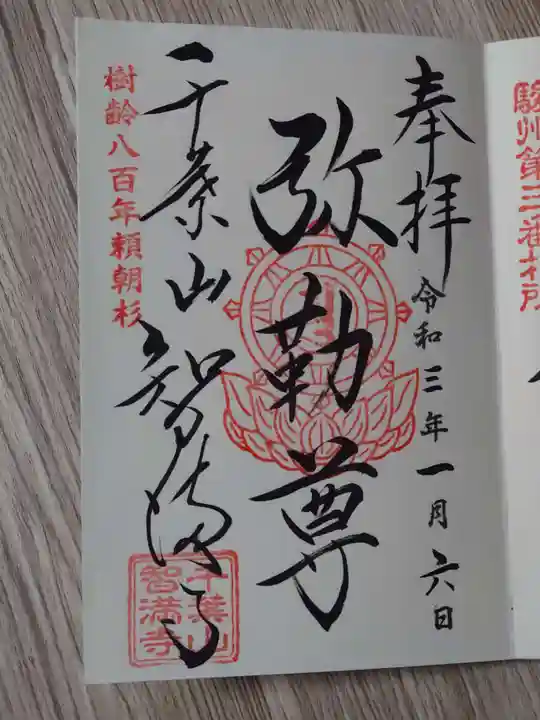 駿州第三番札所
奉拝
令和三年一月六日
弥勒尊
千葉山智満寺
樹齢八百年頼朝杉
千葉山
智満寺